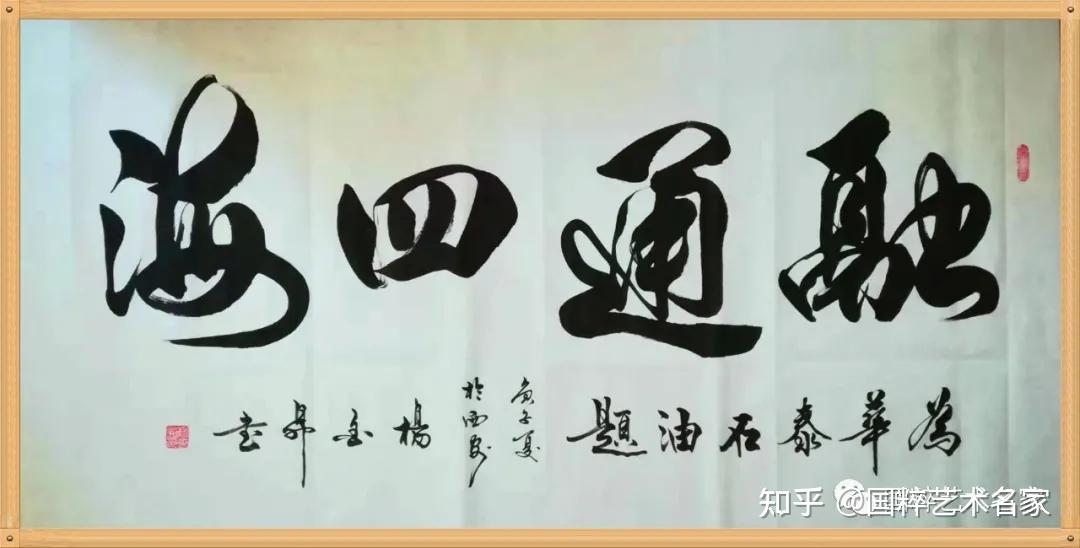 融通四海
為華泰石油題
庚子夏
於西安
楊金昇書
知乎 @国粹艺术名家